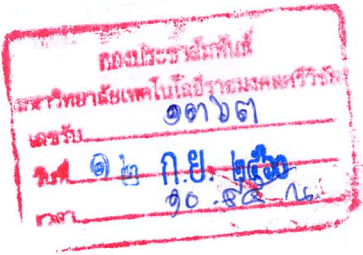 กองประชาสัมพันธ์
มหาวิทยาลัยเทคโนโลยีราชมงคลศรีวิชัย
เลขรับ ๑๓๖๓
วันที่ ๑๒ ก.ย. ๒๕๖๐
เวลา ๑๐.๔๕ น.